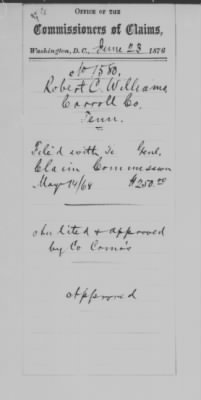 OFFICE OF THE
Commissioners of Claims,
Washington, D.C., June 23 1876
No 1580.
Robert C. Williams
Carroll Co.
Tenn.
Filed with Genl.
Claim Commission
May 14/68 $250.00
& approved
by Co Comrs
Approved